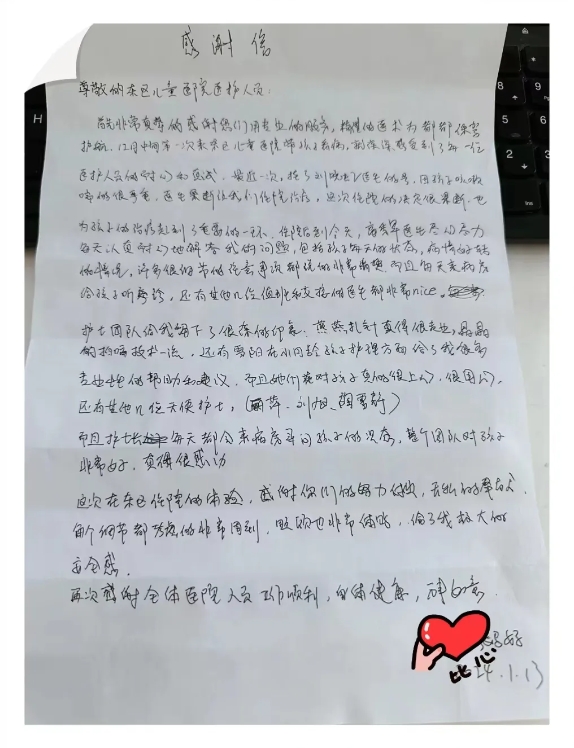 感谢信
尊敬的东区儿童医院医护人员:
首先非常真挚的感谢你们用专业的服务,精湛的医术为
护航,12月中旬第一次来东区儿童医院带孩子看病,感受到了每一位
医护人员的耐心和真诚,最近一次,挂了刘 医生的号,因孩子咳嗽
的很严重,医生果断让我们住院治疗,这次住院的决定很果断,也
为孩子的治疗起到了重要的一环,住院后到今天,高 医生尽心尽力
每天认真耐心地解答我的问题,包括孩子每天的状态,病情好转
的情况,许多很细节的 都说的非常 而且每天来病房
给孩子听诊,还有其他几位值班和交接的医生都非常nice。
护士团队给我留下了很深的印象,燕燕扎针真得很专业,晶晶
的拍嗝技术一流,还有 阳在小月龄孩子护理方面给了我很多
专业性的帮助和建议,而且她们是对孩子真的很上心,很用心,
还有其他几位天使护士,(丽萍、刘旭、 )
而且护士长每天都会来病房寻问孩子的状态,整个团队对孩子
非常好,真得很感动
这次在东区住院的体验,感谢你们的努力付出,无私的奉献,
每个细节都考虑的非常周到,照顾也非常体贴,给了我极大的
安全感。
再次感谢全体医院人员工作顺利,身体健康,
比心
24.1.13